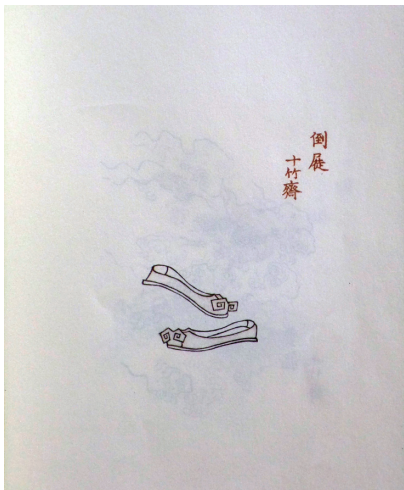 倒屣
十竹齋